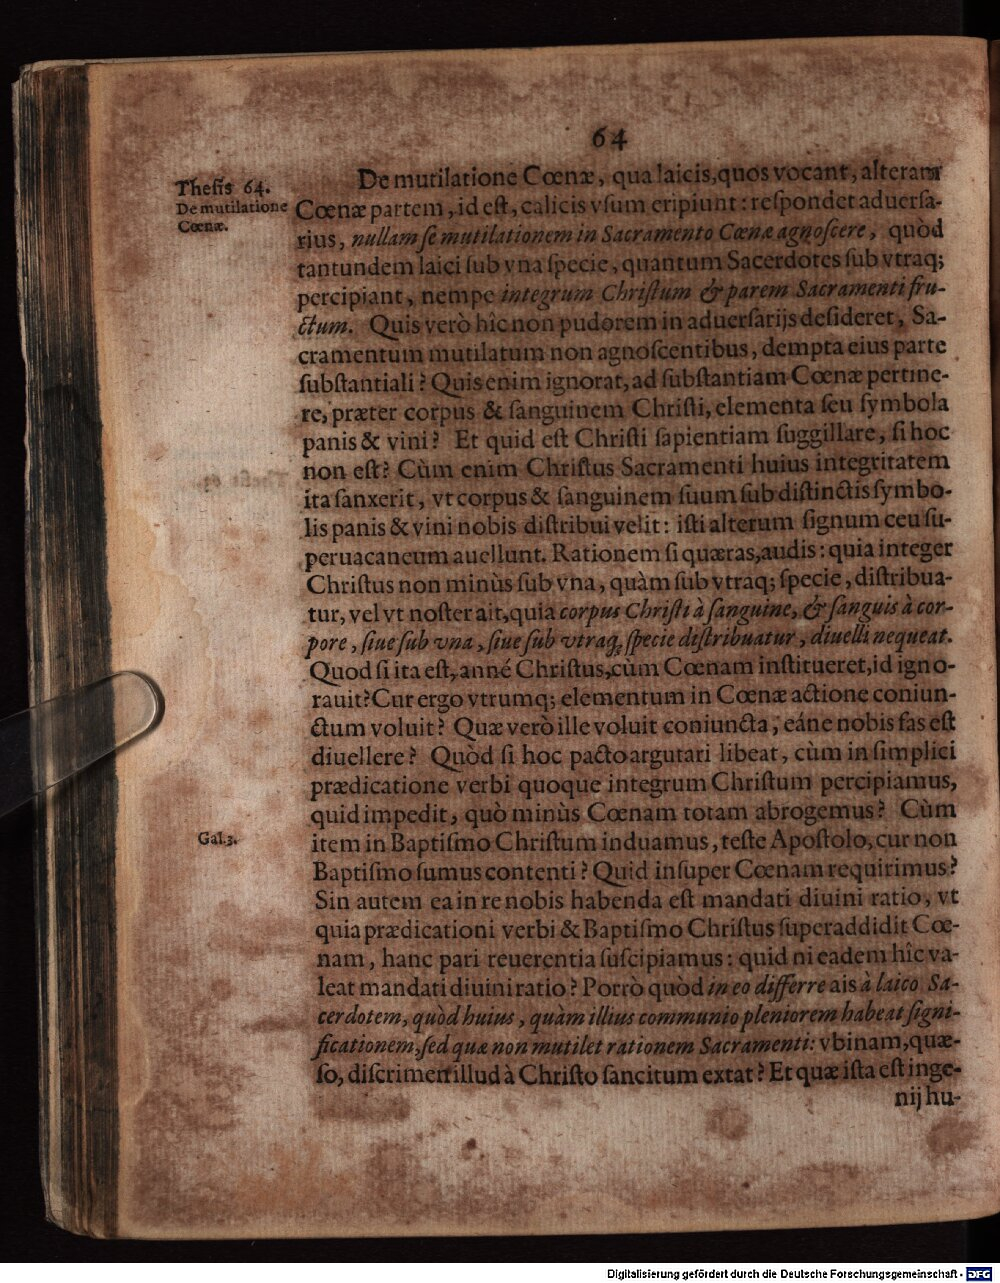 64
Thesis 64.
De mutilatione
Cœnæ.
De mutilatione Cœnæ, qua laicis, quos vocant, alteram
Cœnæ partem, id est, calicis vsum eripiunt: respondet aduersa-
rius, nullam se mutilationem in Sacramento Cœnæ agnoscere, quòd
tantundem laici sub vna specie, quantum Sacerdotes sub vtraq;
percipiant, nempe integrum Christum & parem Sacramenti fru-
ctum. Quis verò hîc non pudorem in aduersarijs desideret, Sa-
cramentum mutilatum non agnoscentibus, dempta eius parte
substantiali? Quis enim ignorat, ad substantiam Cœnæ pertine-
re, præter corpus & sanguinem Christi, elementa seu symbola
panis & vini? Et quid est Christi sapientiam suggillare, si hoc
non est? Cùm enim Christus Sacramenti huius integritatem
ita sanxerit, vt corpus & sanguinem suum sub distinctis symbo-
lis panis & vini nobis distribui velit: isti alterum signum ceu su-
peruacaneum auellunt. Rationem si quæras, audis: quia integer
Christus non minùs sub vna, quàm sub vtraq; specie, distribua-
tur, vel vt noster ait, quia corpus Christi à sanguine, & sanguis à cor-
pore, siue sub vna, siue sub vtraq; specie distribuatur, diuelli nequeat.
Quod si ita est, anné Christus, cùm Cœnam institueret, id igno-
rauit? Cur ergo vtrumq; elementum in Cœnæ actione coniun-
ctum voluit? Quæ verò ille voluit coniuncta, eáne nobis fas est
diuellere? Quòd si hoc pacto argutari libeat, cùm in simplici
prædicatione verbi quoque integrum Christum percipiamus,
quid impedit, quò minùs Cœnam totam abrogemus? Cùm
Gal.3.
item in Baptismo Christum induamus, teste Apostolo, cur non
Baptismo sumus contenti? Quid insuper Cœnam requirimus?
Sin autem ea in re nobis habenda est mandati diuini ratio, vt
quia prædicationi verbi & Baptismo Christus superaddidit Cœ-
nam, hanc pari reuerentia suscipiamus: quid ni eadem hîc va-
leat mandati diuini ratio? Porrò quòd in eo differre ais à laico Sa-
cerdotem, quòd huius, quàm illius communio pleniorem habeat signi-
ficationem, sed quæ non mutilet rationem Sacramenti: vbinam, quæ-
so, discrimen illud à Christo sancitum extat? Et quæ ista est inge-
nij hu-
Digitalisierung gefördert durch die Deutsche Forschungsgemeinschaft - DFG